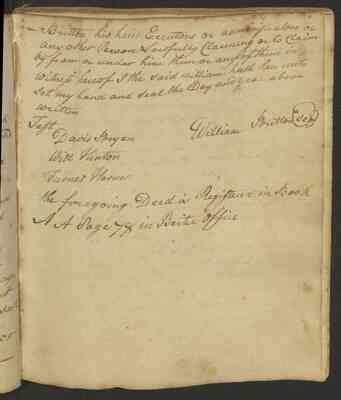 Britton his heirs Executors or administrators or
any other Person Lawfully Claiming or to Claim
by from or under him them or any of them in
witness hereof I the said William hath here unto
set my hand and seal the Day and year above
written
Test
William Britton Seal
Davis Bryan
Will Hinton
Turner
the foregoing Deed is Registered in Book
A A Page 78 in Bertie Office